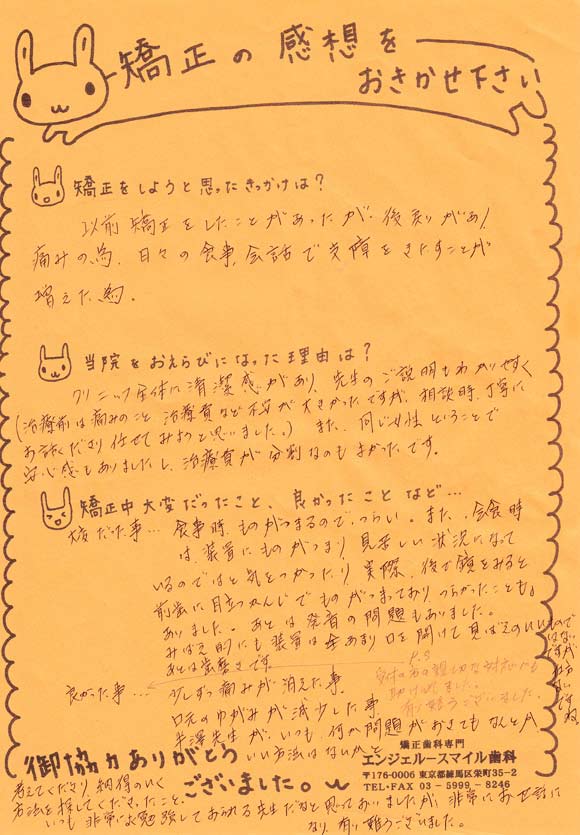 矯正の感想を
おきかせ下さい
矯正をしようと思ったきっかけは？
以前矯正をしたことがあったが、後戻りがあり、
痛みの為、日々の食事、会話で支障をきたすことが
増えた為。
当院をおえらびになった理由は？
クリニック全体に清潔感があり、先生のご説明もわかりやすく
(治療前は痛みのこと、治療費など不安が大きかったですが、相談時、丁寧に
お話くださり任せてみようと思いました。) また、同じ女性ということで
安心感もありましたし、治療費が分割なのもよかったです。
矯正中大変だったこと、良かったことなど…
大変だった事… 食事時、ものがつまるので、つらい。また、会食時
は、装置にものがつまり、見苦しい状況になって
いるのではと気をつかったり、実際、後で鏡をみると
前歯に目立つかんじでものがつまっており、つらかったことも
ありました。あとは発音の問題もありました。
みばえ的にも装置は余あまり口を開けて見ばえのいいもので
はないですが、仕方ないですね。
あとは歯磨きです。
P.S
受付の方の親切な対応にも
助けられました。
有り難うございました。
良かった事… 少しずつ痛みが消えた事、
口元のゆがみが減少した事
半澤先生が、いつも、何か問題がおきてもなんとか
いい方法はないかと
考えてくださり、納得のいく
方法を探してくださったこと、
いつも非常によく勉強しておられる先生だなと思っておりましたが、非常にお世話に
なり、有り難うございました。
御協力ありがとう
ございました。
矯正歯科専門
エンジェルースマイル歯科
〒176-0006 東京都練馬区栄町35-2
TEL・FAX 03-5999-8246